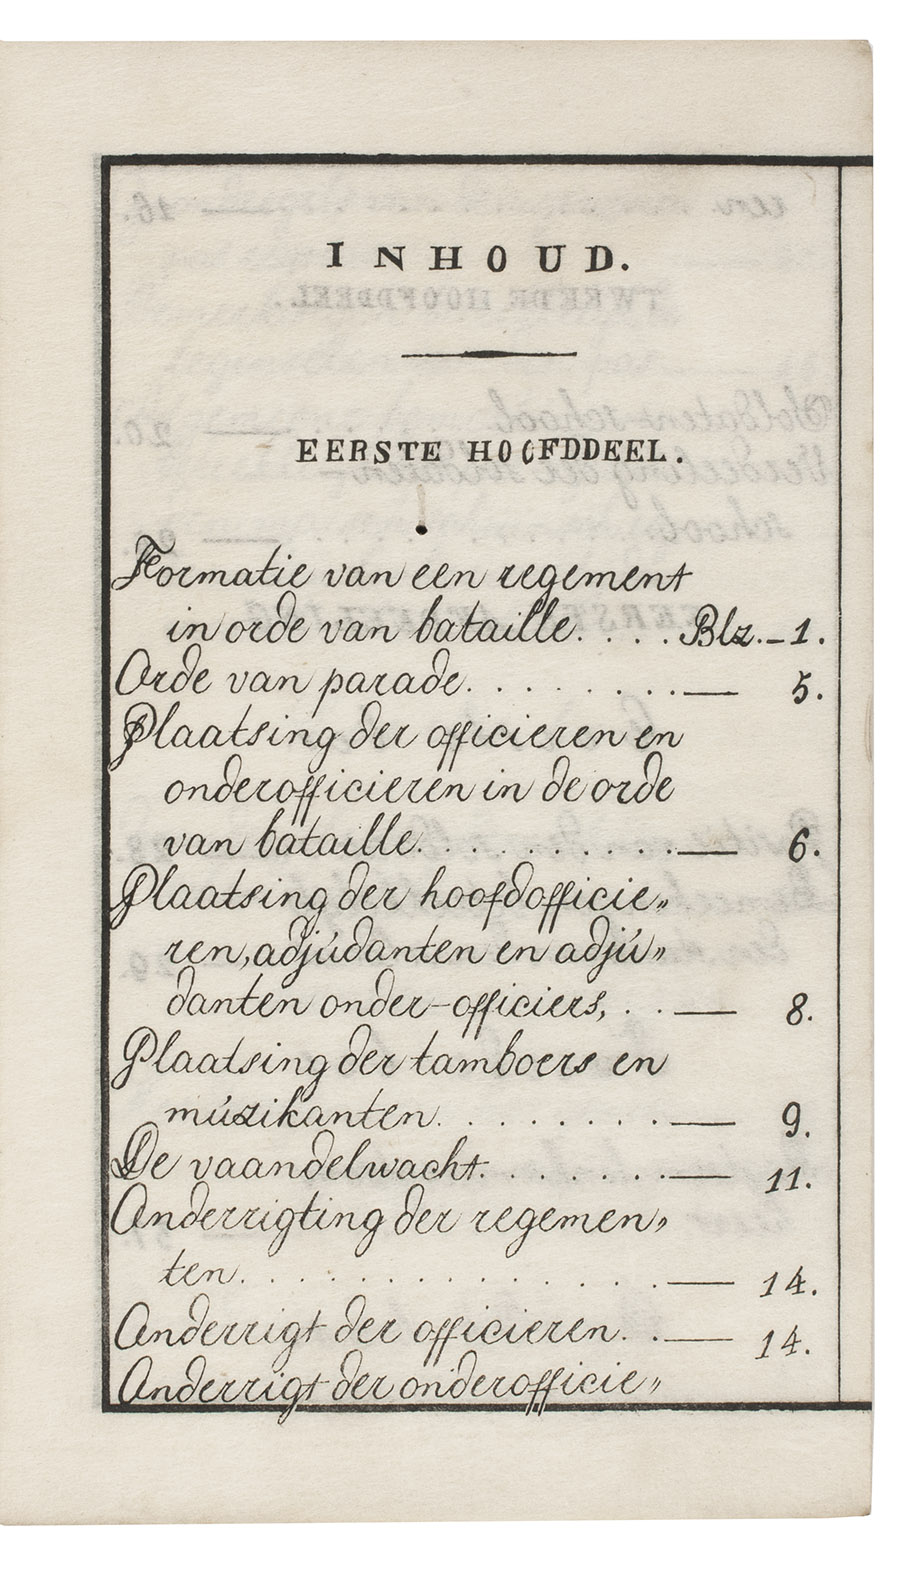 INHOUD.
EERSTE HOOFDDEEL.
Formatie van een regement
in orde van bataille. . . . Blz. — 1.
Orde van parade. . . . . . . . . — 5.
Plaatsing der officieren en
onderofficieren in de orde
van bataille. . . . . . . . . . — 6.
Plaatsing der hoofdofficie„
ren, adjúdanten en adjú„
danten onder-officiers, . . — 8.
Plaatsing der tamboers en
múzikanten. . . . . . . . . — 9.
De vaandelwacht. . . . . . . — 11.
Onderrigting der regemen„
ten. . . . . . . . . . . . . . . — 14.
Onderrigt der officieren. . — 14.
Onderrigt der onderofficie„